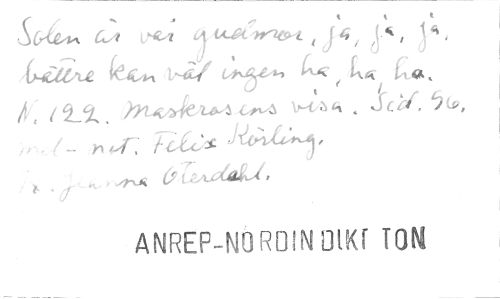 Solen är vår gudmor, ja, ja, ja,
bättre kan väl ingen ha, ha, ha.
N. 122. Maskrosens visa. Sid. 96.
mel-not. Felix Körling.
Jeanna Oterdahl.
ANREP-NORDIN DIKT TON